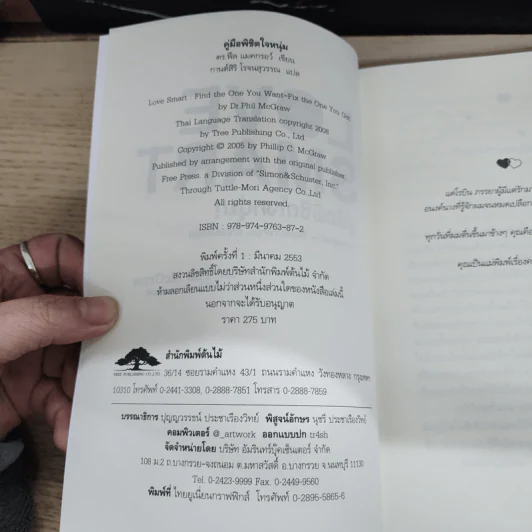 คู่มือพิชิตใจหนุ่ม
ดร.ฟิล แมคกรอว์ เขียน
กานต์สิริ โรจนสุวรรณ แปล
Love Smart : Find the One You Want-Fix the One You Got
by Dr.Phil McGraw
Thai Language Translation copyright 2008
by Tree Publishing Co., Ltd.
Copyright © 2005 by Phillip C. McGraw
Published by arrangement with the original publisher,
Free Press. a Division of "Simon&Schuster, Inc."
Through Tuttle-Mori Agency Co.,Ltd
All rights reserved.
ISBN : 978-974-9763-87-2
พิมพ์ครั้งที่ 1 : มีนาคม 2553
สงวนลิขสิทธิ์โดยบริษัทสำนักพิมพ์ต้นไม้ จำกัด
ห้ามลอกเลียนแบบไม่ว่าส่วนหนึ่งส่วนใดของหนังสือเล่มนี้
นอกจากจะได้รับอนุญาต
ราคา 275 บาท
สำนักพิมพ์ต้นไม้
TREE PUBLISHING CO.,LTD.
36/14 ซอยรามคำแหง 43/1 ถนนรามคำแหง วังทองหลาง กรุงเทพฯ
10310 โทรศัพท์ 0-2441-3308, 0-2888-7851 โทรสาร 0-2888-7859
บรรณาธิการ ปุญญวรรธน์ ประชาเรืองวิทย์ พิสูจน์อักษร นุชรี ประชาเรืองวิทย์
คอมพิวเตอร์ @_artwork ออกแบบปก tr4sh
จัดจำหน่ายโดย บริษัท อัมรินทร์บุ๊คเซ็นเตอร์ จำกัด
108 ม.2 ถ.บางกรวย-จงถนอม ต.มหาสวัสดิ์ อ.บางกรวย จ.นนทบุรี 11130
Tel. 0-2423-9999 Fax. 0-2449-9560
พิมพ์ที่ ไทยยูเนี่ยนกราฟฟิกส์ โทรศัพท์ 0-2895-5865-6
แด่โรบิน ภรรยาผู้มีแต่รักมา
อนงค์นางที่รู้จักผมจนหมดเปลือก
ทุกวันที่ผมตื่นขึ้นมาข้างๆ คุณคือ
คุณเป็นแม่พิมพ์เรื่อง